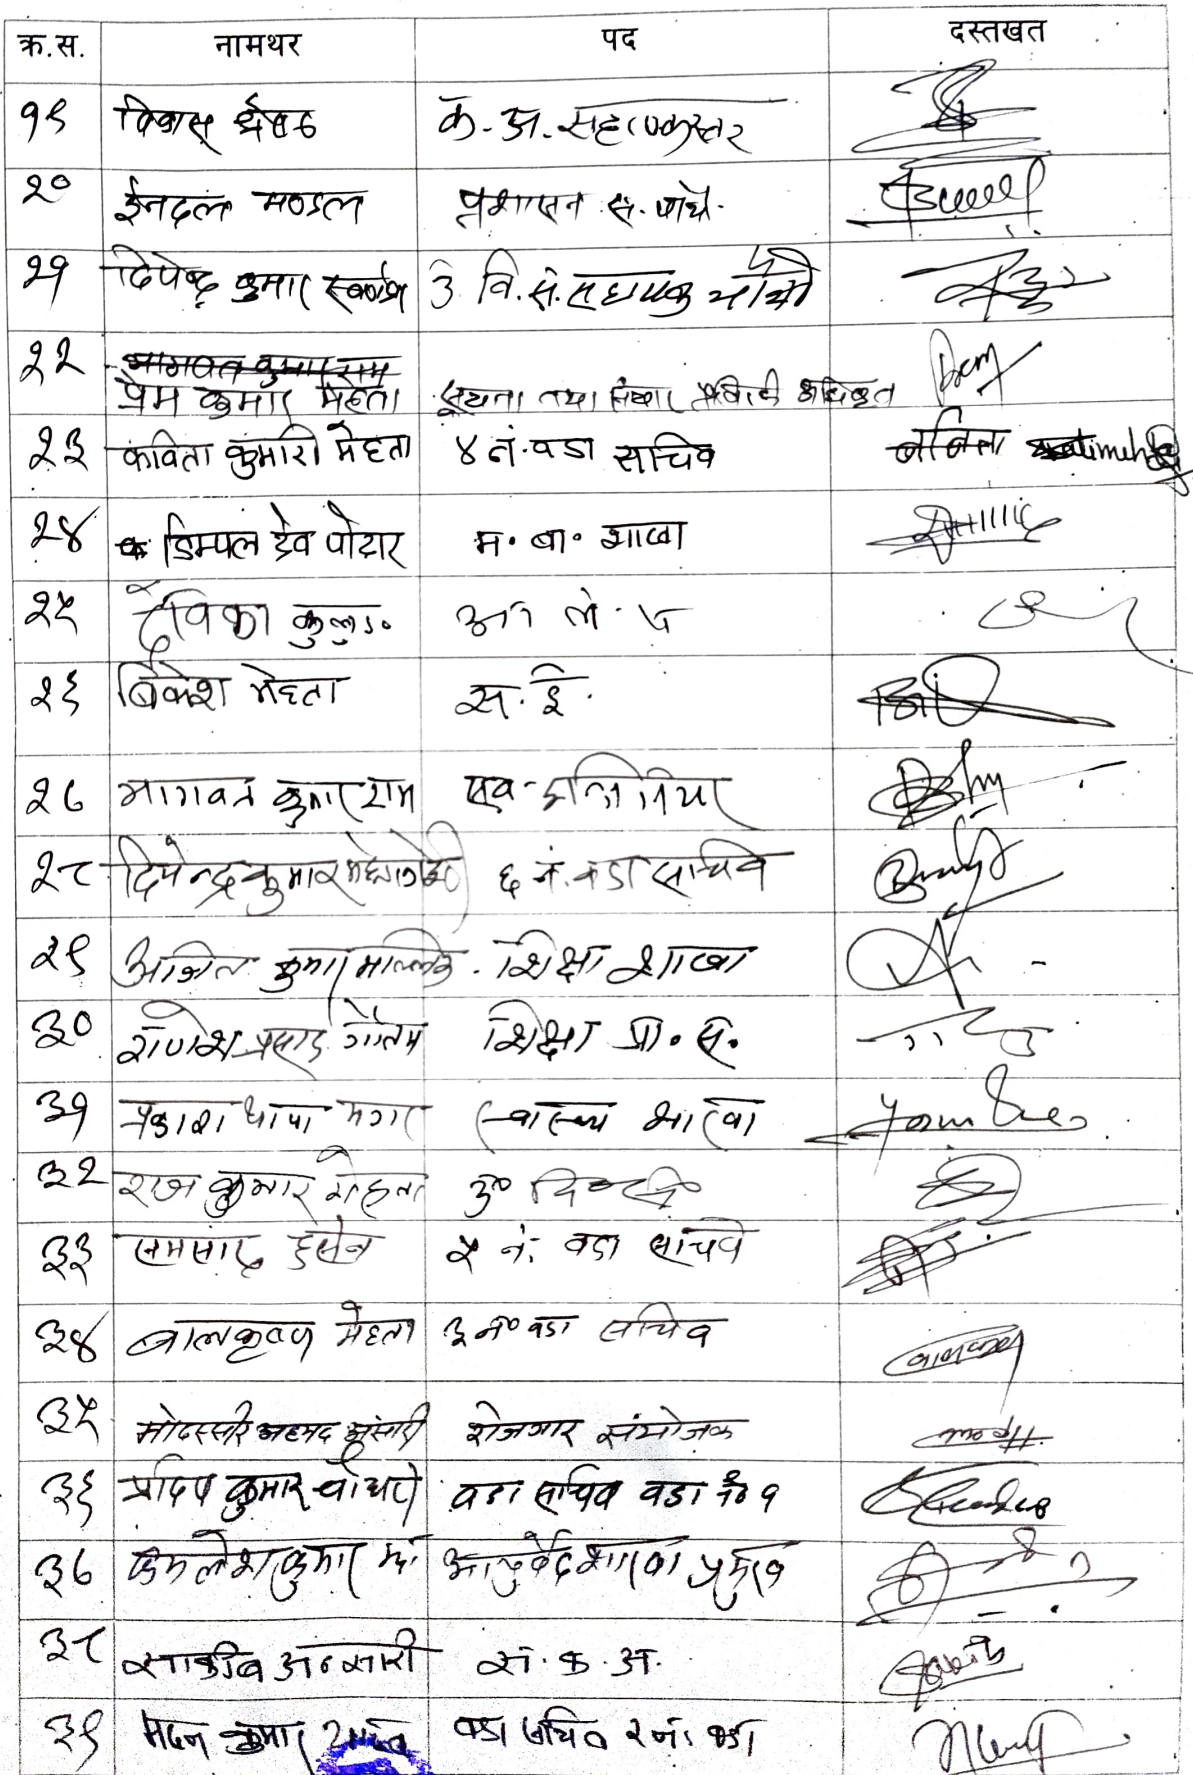 क्र.स. नामथर पद दस्तखत
१९ विकास श्रेष्ठ क. अ. सहायकस्तर
२० ईनदल मण्डल प्रशासन स. पाचौ.
२१ दिपेन्द्र कुमार उ वि. स. सहायक पाँचौ
२२ भागवत कुमार राम
प्रेम कुमार मेहता सूचना तथा संचार प्रविधि अधिकृत
२३ कविता कुमारी मेहता ४ नं. वडा सचिव
२४ डिम्पल देव पोद्दार म. बा. शाखा
२५ देविका
२६ बिकेश मेहता स. ई.
२७ भागवत कुमार राम सव-इन्जिनियर
२८ दिपेन्द्र कुमार ६ नं. वडा सचिव
२९ अजित कुमार मल्लिक शिक्षा शाखा
३० गणेश प्रसाद गौतम शिक्षा प्रा. स.
३१ प्रकाश थापा मगर स्वास्थ्य शाखा
३२ राज कुमार मेहता
३३ समसाद हुसेन ५ नं. वडा सचिव
३४ बालकृष्ण मेहता ३ नं० वडा सचिव
३५ मोदस्सीर अहमद अंसारी रोजगार संयोजक
३६ प्रदिप कुमार चौधरी वडा सचिव वडा नं० १
३७ कमलेश कुमार झा आयुर्वेद शाखा प्रमुख
३८ साकीब अन्सारी स. क. अ.
३९ मदन कुमार वडा सचिव २ नं. वडा